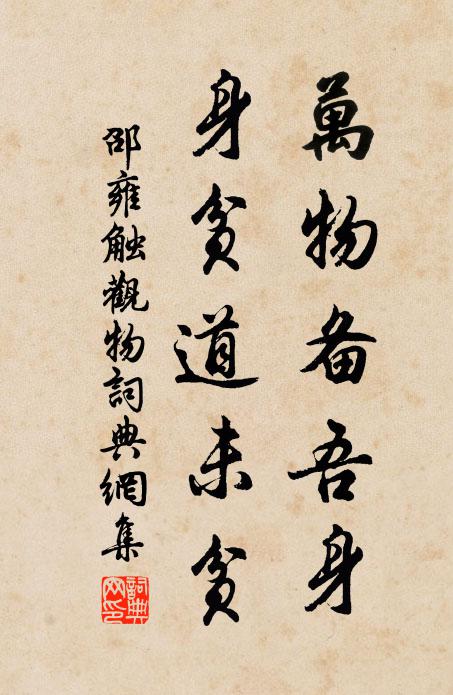 萬物备吾身
身貧道未貧
邵雍触觀物詞典網集
詞典
网印